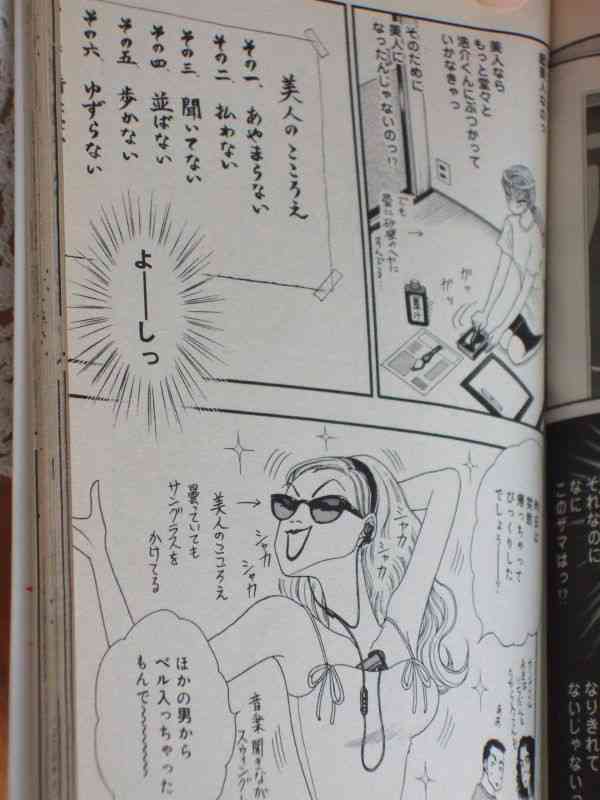 美人なら
もっと堂々と
浩介くんにぶつかって
いかなきゃっ
そのために
美人に
なったんじゃないのっ!?
ガッ
ガッ
墨汁
美人のこころえ
その一、あやまらない
その二、払わない
その三、聞いてない
その四、並ばない
その五、歩かない
その六、ゆずらない
よーしっ
昨日は
突然
帰っちゃって
びっくりした
でしょう
シャカ
シャカ
シャカ
シャカ
美人のこころえ
曇っていても
サングラスを
かけてる
ほかの男から
ベル入っちゃった
もんで
音楽聞きながら
それなのに
なに
このザマはっ!?
なりきれて
ないじゃないっ